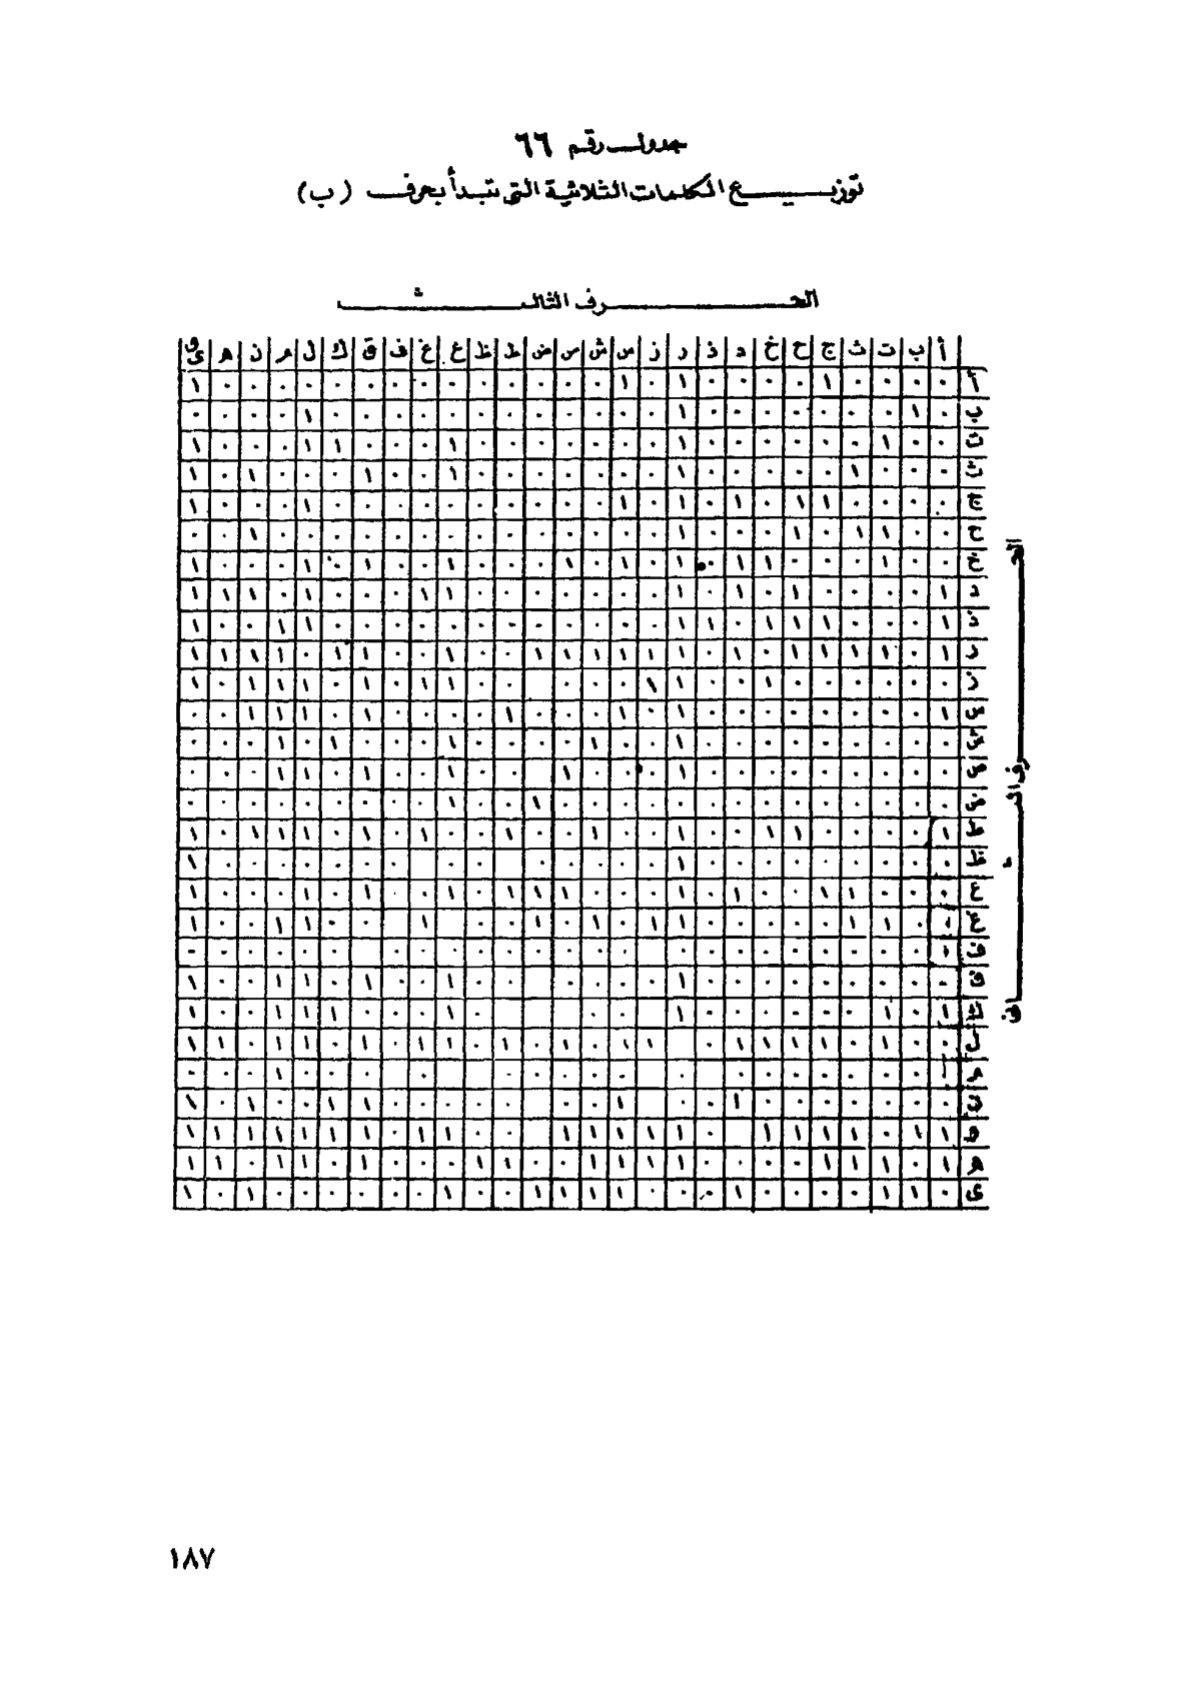 جدول رقم ٦٦
توزيع الكلمات الثلاثية التى تبدأ بحرف (ب)
الحرف الثالث
أ ب ت ث ج ح خ د ذ ر ز س ش ص ض ط ظ ع غ ف ق ك ل م ن ه و ى
أ ٠ ٠ ٠ ٠ ١ ٠ ٠ ٠ ٠ ١ ٠ ١ ٠ ٠ ٠ ٠ ٠ ٠ ٠ ٠ ٠ ٠ ٠ ٠ ٠ ٠ ١
ب ٠ ١ ٠ ٠ ٠ ٠ ٠ ٠ ٠ ١ ٠ ٠ ٠ ٠ ٠ ٠ ٠ ٠ ٠ ٠ ٠ ٠ ١ ٠ ٠ ٠ ٠
ت ٠ ٠ ١ ٠ ٠ ٠ ٠ ٠ ٠ ١ ٠ ٠ ٠ ٠ ٠ ٠ ٠ ١ ٠ ٠ ٠ ١ ١ ٠ ٠ ٠ ١
ث ٠ ٠ ٠ ١ ٠ ٠ ٠ ٠ ٠ ١ ٠ ٠ ٠ ٠ ٠ ٠ ٠ ١ ٠ ٠ ١ ٠ ٠ ٠ ١ ٠ ١
ج ٠ ٠ ٠ ٠ ١ ١ ٠ ١ ٠ ١ ٠ ١ ٠ ٠ ٠ ٠ ٠ ٠ ٠ ٠ ٠ ٠ ١ ٠ ٠ ٠ ١
ح ٠ ٠ ١ ١ ٠ ١ ٠ ٠ ٠ ١ ٠ ٠ ٠ ٠ ٠ ٠ ٠ ٠ ٠ ٠ ٠ ٠ ٠ ٠ ١ ٠ ٠
خ ٠ ٠ ١ ٠ ٠ ٠ ١ ١ ٠ ١ ٠ ١ ٠ ١ ٠ ٠ ٠ ١ ٠ ٠ ١ ٠ ١ ٠ ٠ ٠ ١
د ١ ٠ ٠ ٠ ٠ ١ ٠ ١ ٠ ١ ٠ ٠ ٠ ٠ ٠ ٠ ٠ ١ ١ ٠ ٠ ٠ ١ ٠ ١ ١ ١
ذ ١ ٠ ٠ ٠ ١ ١ ١ ٠ ١ ١ ٠ ٠ ٠ ٠ ٠ ٠ ٠ ٠ ٠ ٠ ٠ ٠ ١ ١ ٠ ٠ ١
ر ١ ٠ ١ ١ ١ ١ ٠ ١ ٠ ١ ١ ١ ١ ١ ١ ٠ ٠ ١ ٠ ٠ ١ ١ ٠ ١ ١ ١ ١
ز ٠ ٠ ٠ ٠ ٠ ٠ ١ ٠ ٠ ١ ١ ٠ ٠ ٠ ٠ ٠ ١ ١ ٠ ١ ٠ ١ ١ ١ ٠ ١
س ١ ٠ ٠ ٠ ٠ ٠ ٠ ٠ ٠ ١ ٠ ١ ٠ ٠ ٠ ١ ٠ ٠ ٠ ٠ ١ ٠ ١ ١ ١ ٠ ٠
ش ٠ ٠ ٠ ٠ ٠ ٠ ٠ ٠ ٠ ١ ٠ ٠ ١ ٠ ٠ ٠ ٠ ١ ٠ ٠ ٠ ١ ٠ ١ ٠ ٠ ٠
ص ٠ ٠ ٠ ٠ ٠ ٠ ٠ ٠ ٠ ١ ٠ ٠ ٠ ١ ٠ ٠ ٠ ١ ٠ ٠ ١ ٠ ١ ١ ٠ ٠ ٠
ض ٠ ٠ ٠ ٠ ٠ ٠ ٠ ٠ ٠ ٠ ٠ ٠ ٠ ٠ ١ ٠ ٠ ١ ٠ ٠ ٠ ٠ ٠ ٠ ٠ ٠ ٠
ط ١ ٠ ٠ ٠ ٠ ١ ١ ٠ ٠ ١ ٠ ٠ ١ ٠ ٠ ١ ٠ ٠ ١ ٠ ١ ٠ ١ ١ ١ ٠ ١
ظ ٠ ٠ ٠ ٠ ٠ ٠ ٠ ٠ ٠ ١ ٠ ٠ ٠ ٠ ٠ ٠ ٠ ٠ ٠ ٠ ٠ ٠ ١
ع ٠ ٠ ٠ ١ ١ ٠ ٠ ١ ٠ ١ ٠ ٠ ٠ ١ ١ ١ ٠ ١ ٠ ٠ ١ ٠ ١ ٠ ٠ ٠ ١
غ ٠ ٠ ١ ١ ٠ ٠ ٠ ٠ ٠ ١ ١ ٠ ١ ٠ ١ ٠ ٠ ١ ٠ ٠ ١ ١ ٠ ٠ ١
ف ٠ ٠ ٠ ٠ ٠ ٠ ٠ ٠ ٠ ٠ ٠ ٠ ٠ ٠ ٠ ٠ ٠ ٠ ٠ ٠ ٠ ٠ ٠ ٠ ٠ ٠ ٠
ق ٠ ٠ ٠ ٠ ٠ ٠ ٠ ٠ ٠ ١ ٠ ٠ ٠ ٠ ٠ ٠ ١ ٠ ٠ ١ ٠ ١ ١ ٠ ٠ ١
ك ١ ٠ ١ ٠ ٠ ٠ ٠ ٠ ٠ ١ ٠ ٠ ٠ ١ ٠ ٠ ٠ ١ ١ ١ ٠ ٠ ١
ل ٠ ٠ ١ ٠ ١ ١ ١ ١ ٠ ١ ١ ٠ ١ ٠ ١ ٠ ١ ١ ٠ ١ ٠ ١ ١ ٠ ١ ١
م ٠ ٠ ٠ ٠ ٠ ٠ ٠ ٠ ٠ ٠ ٠ ٠ ٠ ٠ ٠ ٠ ٠ ١ ٠ ٠ ٠
ن ٠ ٠ ٠ ٠ ٠ ٠ ٠ ١ ٠ ٠ ١ ٠ ٠ ٠ ٠ ٠ ٠ ٠ ١ ١ ٠ ٠ ١ ٠ ١
و ١ ١ ٠ ١ ١ ١ ١ ٠ ١ ١ ١ ١ ١ ٠ ٠ ١ ١ ٠ ١ ١ ١ ١ ١ ١ ١
ه ١ ٠ ١ ١ ١ ٠ ٠ ٠ ٠ ١ ١ ١ ١ ٠ ٠ ١ ١ ٠ ٠ ٠ ١ ٠ ١ ١ ٠ ١ ١
ى ٠ ١ ١ ٠ ٠ ٠ ٠ ١ ٠ ٠ ٠ ١ ١ ١ ١ ٠ ٠ ١ ٠ ٠ ٠ ٠ ٠ ٠ ١ ٠ ١
الحرف الثانى
١٨٧